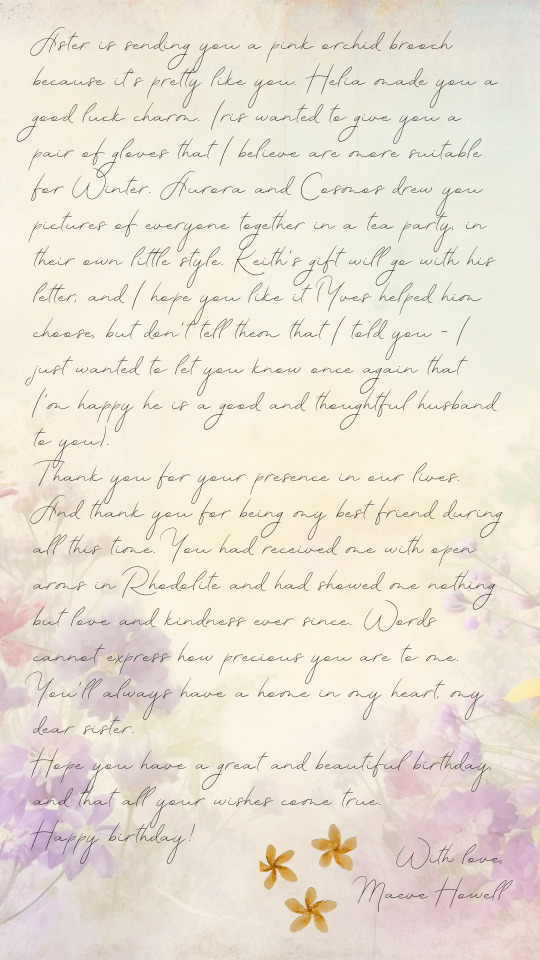 Aster is sending you a pink orchid brooch
because it's pretty like you. Helia made you a
good luck charm. Iris wanted to give you a
pair of gloves that I believe are more suitable
for Winter. Aurora and Cosmos drew you
pictures of everyone together in a tea party, in
their own little style. Keith's gift will go with his
letter, and I hope you like it (Yves helped him
choose, but don't tell them that I told you - I
just wanted to let you know once again that
I'm happy he is a good and thoughtful husband
to you).
Thank you for your presence in our lives.
And thank you for being my best friend during
all this time. You had received me with open
arms in Rhodolite and had showed me nothing
but love and kindness ever since. Words
cannot express how precious you are to me.
You'll always have a home in my heart, my
dear sister.
Hope you have a great and beautiful birthday,
and that all your wishes come true.
Happy birthday!
With love,
Maeve Howell